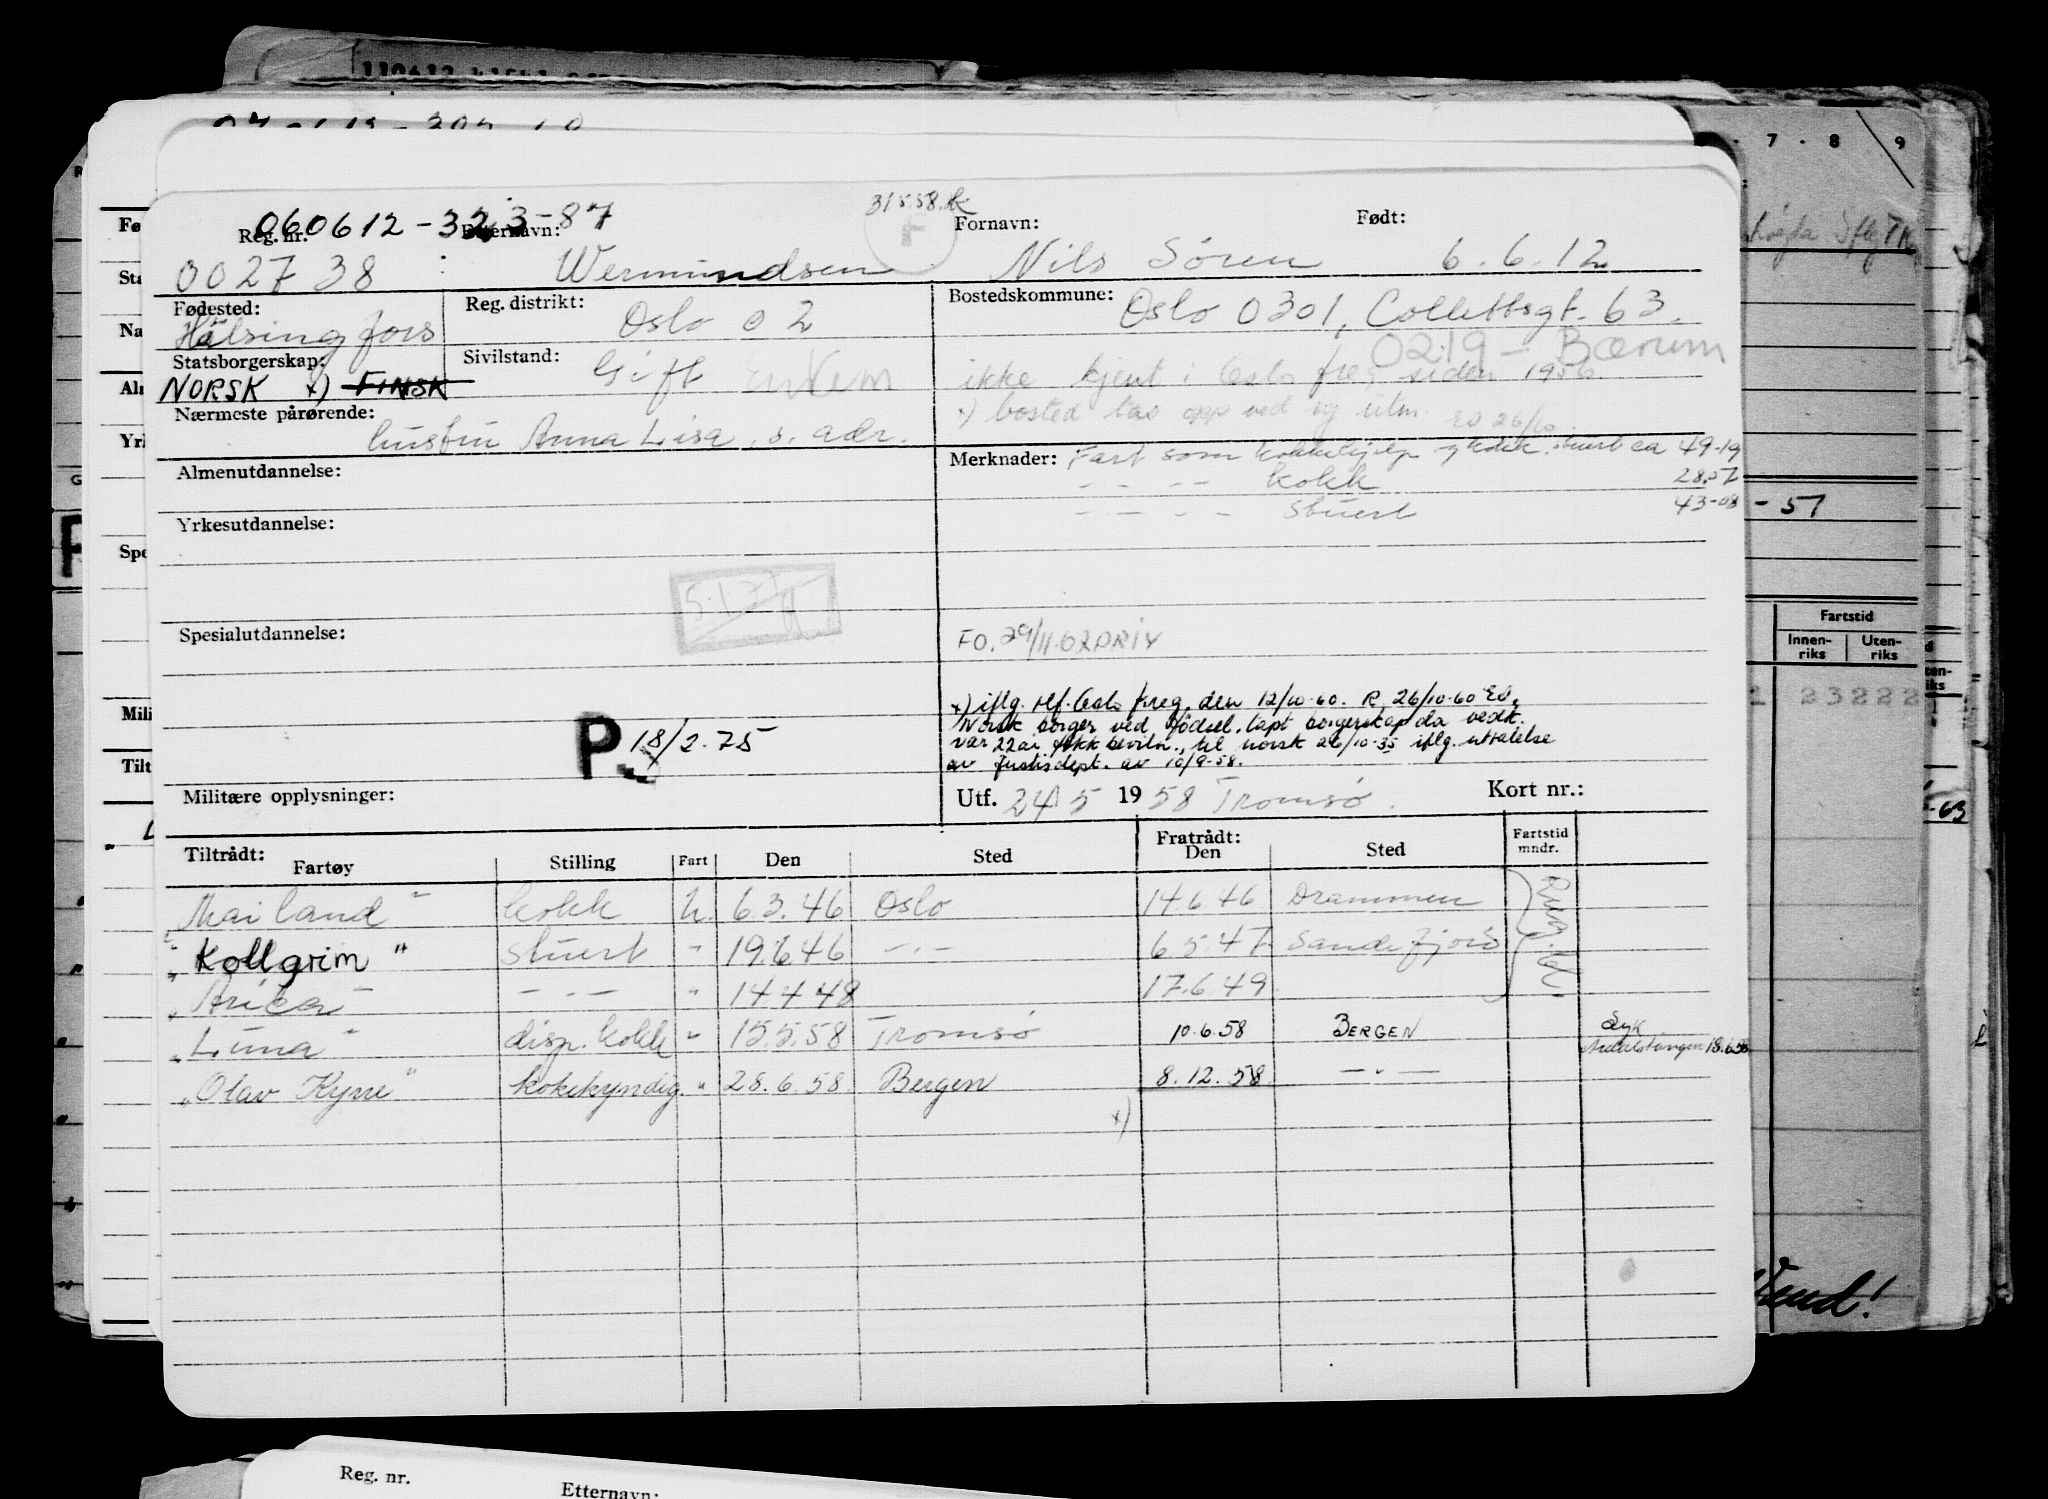 31558.
060612-323-87
Reg. nr. Etternavn: Fornavn: Født:
002738 Wermundsen Nils Søren 6.6.12
Fødested: Reg. distrikt: Bostedskommune:
Hälsingfors Oslo 02 Oslo 0301, Collettsgt. 63.
0219 - Bærum
Statsborgerskap: Sivilstand:
NORSK x) FINSK Gift
ikke kjent i Oslo freg siden 1956.
Nærmeste pårørende:
hustru Anna Lisa, s. adr.
x) bosted tas opp ved ny utm. 26/10.
Almenutdannelse:
Merknader: Fart som kokkehjelp og kokk. stuert ca 49-19
- - - - kokk 28.07
- - - - stuert 43-08 - 57
Yrkesutdannelse:
5.177
Spesialutdannelse:
FO. 29/11.62 PRIV
P 18/2.75
x) iflg. tlf. Oslo freg. den 12/10-60. R. 26/10-60
Norsk borger ved fødsel. tapt borgerskap da vedk.
var 22 år fikk beviln. til norsk 26/10-35 iflg. uttalelse
av Justisdept. av 10/9-58.
Militære opplysninger:
Utf. 24/5 1958 Tromsø. Kort nr.:
Tiltrådt: Fratrådt: Fartstid mndr.
Fartøy Stilling Fart Den Sted Den Sted
"Mailand" kokk U. 6.3.46 Oslo 14.6.46 Drammen
"Kollgrim" stuert " 19.6.46 -"- 6.5.47 Sandefjord
"Arica" -"- " 14.4.48 17.6.49
"Luna" disp. kokk " 15.5.58 Tromsø 10.6.58 BERGEN Syk
Årdalstangen 18.6.58
"Olav Kyrre" kokekyndig. " 28.6.58. Bergen 8.12.58 -"-
x)
7 . 8 9
Fartstid
Innen-riks Uten-riks
23222
-63
Vend!
Reg. nr.
Etternavn: